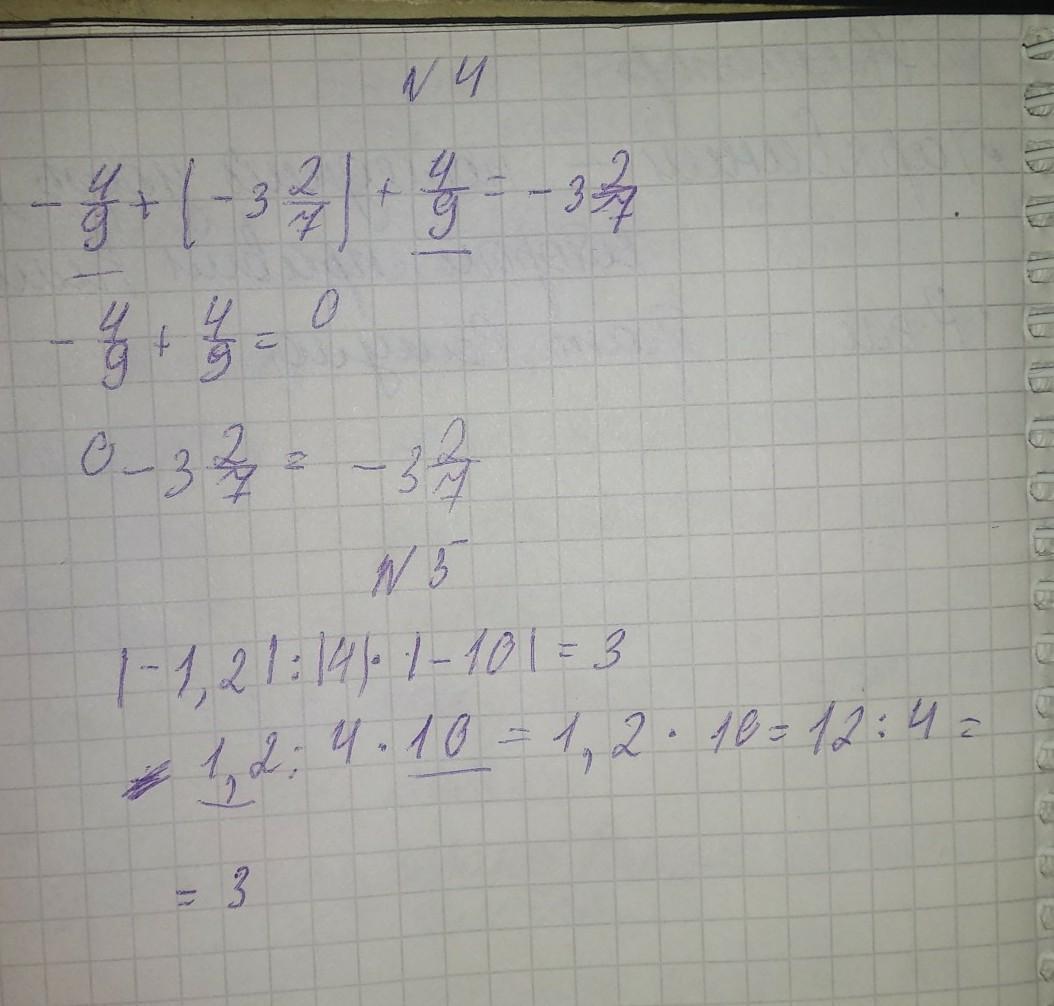 N 4
- 4/9 + (- 3 2/7) + 4/9 = - 3 2/7
- 4/9 + 4/9 = 0
0 - 3 2/7 = - 3 2/7
N 5
|-1,2| : |4| · |-10| = 3
1,2 : 4 · 10 = 1,2 · 10 = 12 : 4 =
= 3